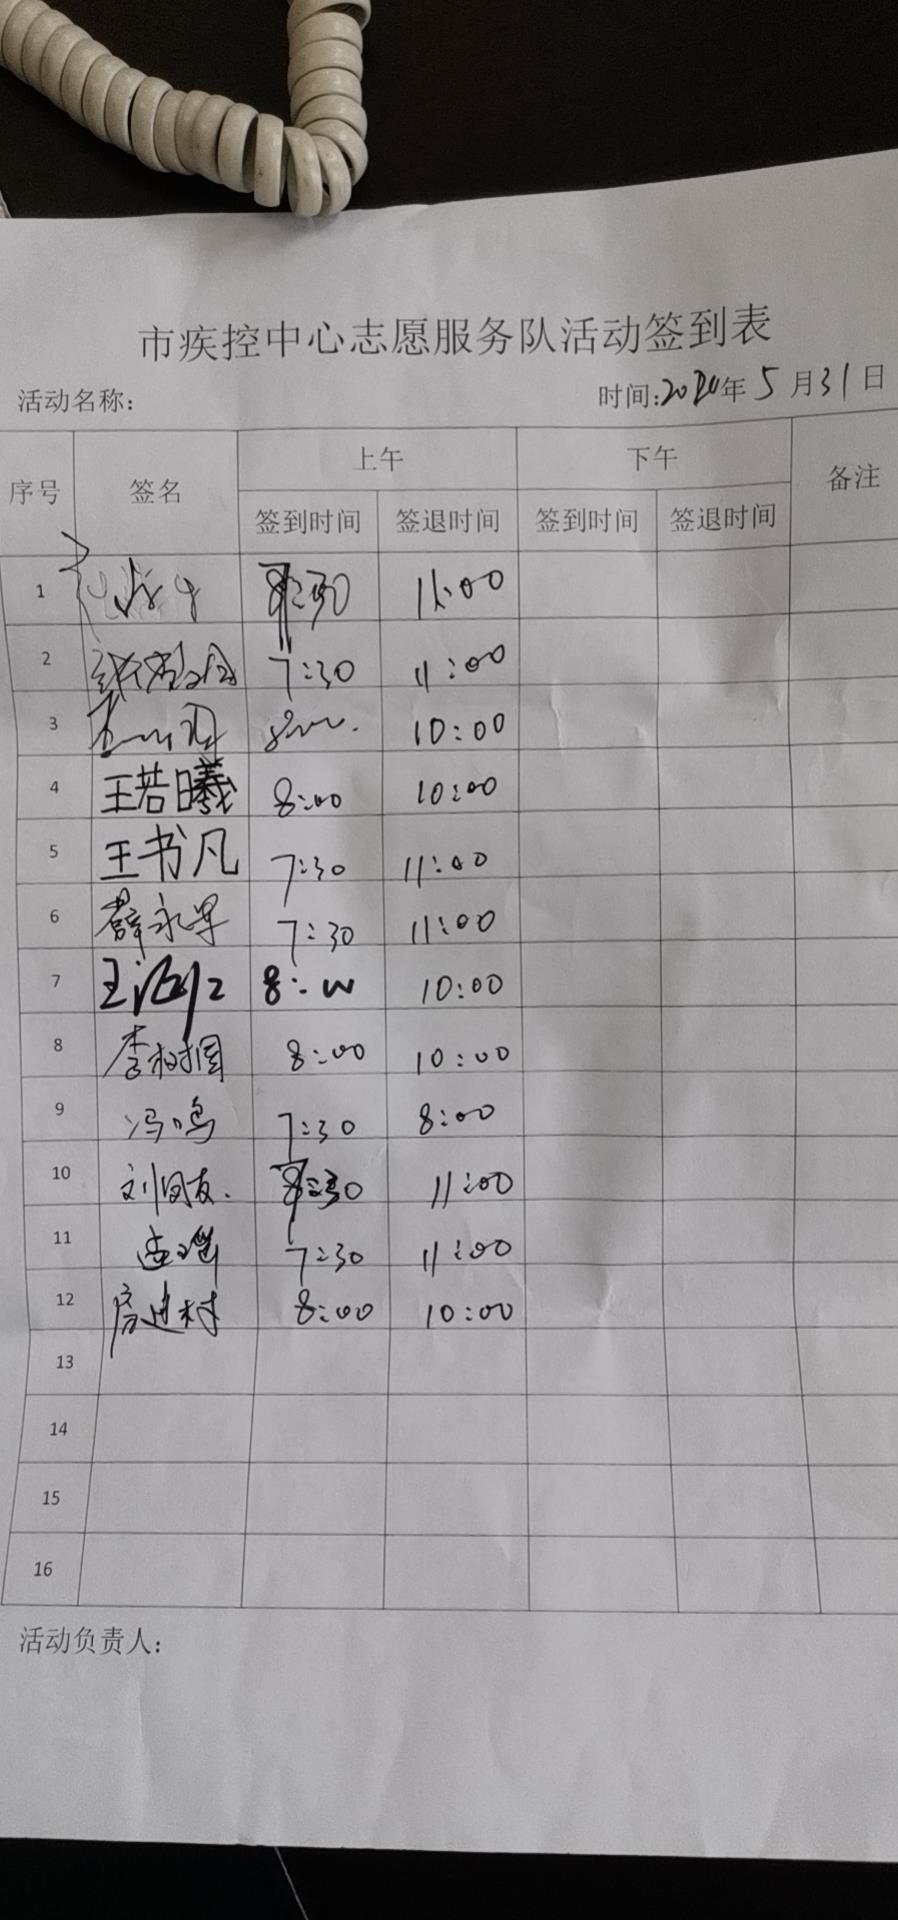 市疾控中心志愿服务队活动签到表
活动名称： 时间:2024年5月31日
序号 签名 上午 下午 备注
签到时间 签退时间 签到时间 签退时间
1 11:00
2 7:30 11:00
3 10:00
4 王若曦 8:00 10:00
5 王书凡 7:30 11:00
6 薛永 7:30 11:00
7 王 8:00 10:00
8 李树国 8:00 10:00
9 冯鸣 7:30 8:00
10 刘 11:00
11 孟瑶 7:30 11:00
12 房进村 8:00 10:00
13
14
15
16
活动负责人：